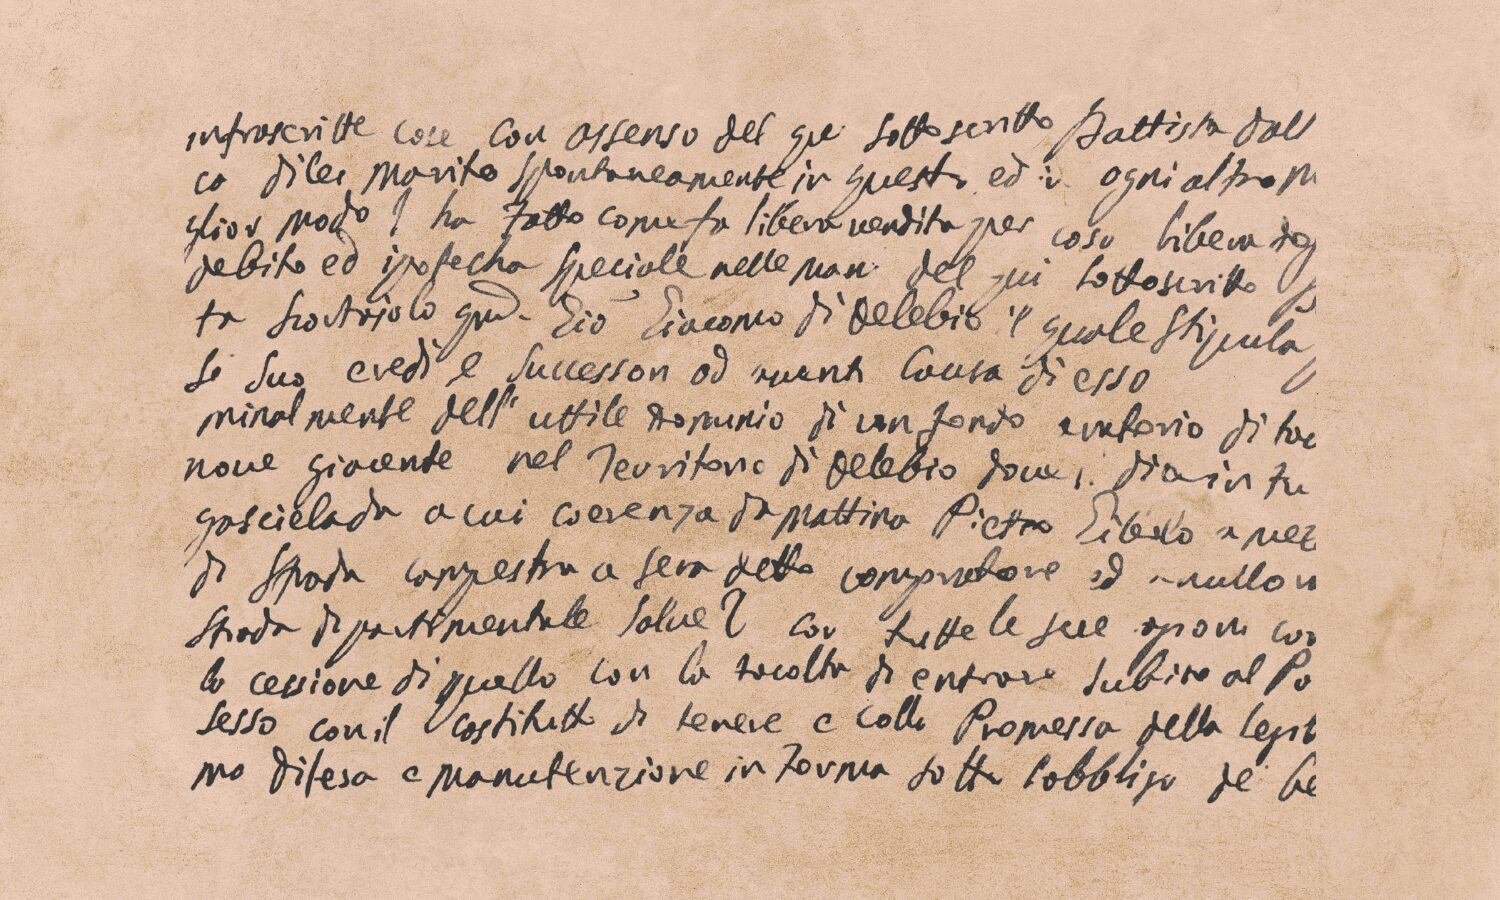 infrascritte cose con assenso del qui sottoscritto Battista dall
ca dilei marito spontaneamente in questo ed in ogni altro m
glior modo ha fatto come fa libera vendita per cosa libera dog
debito ed ipotecha speciale nelle man del qui sottoscritto
ta qud. Gio Giacomo di Delebio il quale stipula
Se suo eredi e successori ad aventi causa di esso
minalmente dell' uttile dominio di un fondo aratorio di tav
nove giacente nel Territorio di Delebio dove si dia in
gascielada a cui coerenza da mattina Pietro a mez
di strada campestra a sera detto compratore ed a nullo
Strada dipartimentale salve con tutte le sue con
la cessione di quello con la facolta di entrare subito al Po
sesso con il costitutto di tenere e colla Promessa della legit
ma difesa e manutenzione in forma sotto l'obbligo de be